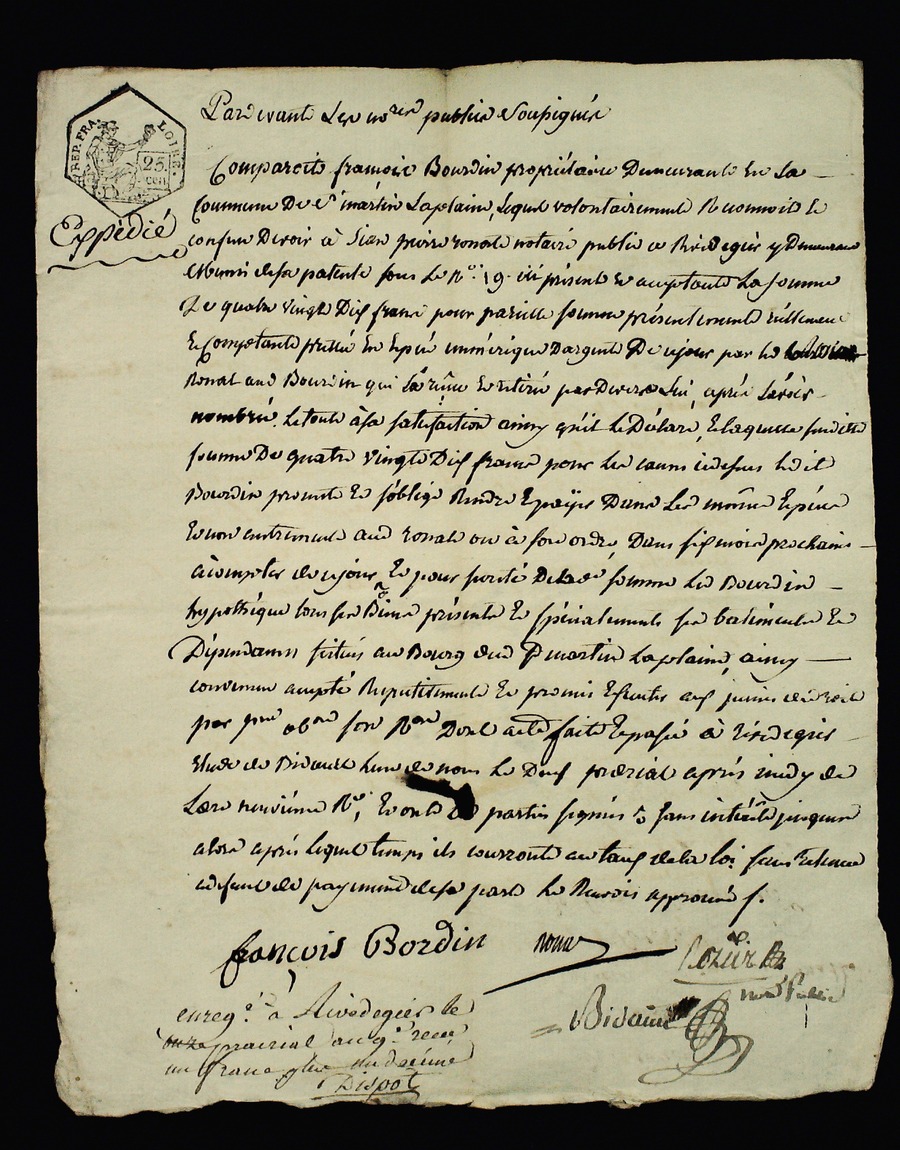 REP. FRA.
LOIRE.
25.
cen
Expédié
Pardevant Les nores publics Soussignés
Comparoit françois Bourdin propriétaire Demeurant En La
Commune De St martin Laplaine, Lequel volontairement Reconnoit et
confesse Devoir à Sieur pierre ronat notaire public a Rivedegier y Demeurant
et muni de sa patente sous Le No. 19. ici présent et acceptant La somme
De quatre vingt Dix francs pour pareille somme présentement réellement
et Comptant prettée En Espèce numérique Dargent De ce jour par led
Ronat aud Bourdin qui L'a retiré pardevers Lui, après L'avoir
nombré, Le tout à sa satisfaction ainsy qu'il Le Déclare, Et laquelle susditte
somme De quatre vingt Dix francs pour les causes cidessus led it
Bourdin promet Et s'oblige Rendre Et payer Dans Les même Espèces
Et non autrement aud ronat ou à son ordre, Dans six mois prochains
à compter de ce jour, Et pour sureté De lade somme led Bourdin
hypothèque tous ses Biens présents Et spécialement ses batiments Et
Dépendances situés au Bourg dud St martin Laplaine, ainsy
convenu accepté Respectivement Et promis Exécuter aux peines de droit
par Dont acte fait Et passé à Rivedegier
Etude de Bidault L'un de nous Le Deux prairial après midy de
L'an neuvième Et ont les parties signés sans intérêts jusques
alors après lequel temps ils courront au taux de la loi sans retenue
a defaut de payement de sa part Le Renvois approuvé
françois Bordin
ronat
nore Public
Bidault
enregé. à Rivedegier le
onze prairial an 9e. reçu
un franc plus un decime
Dispot